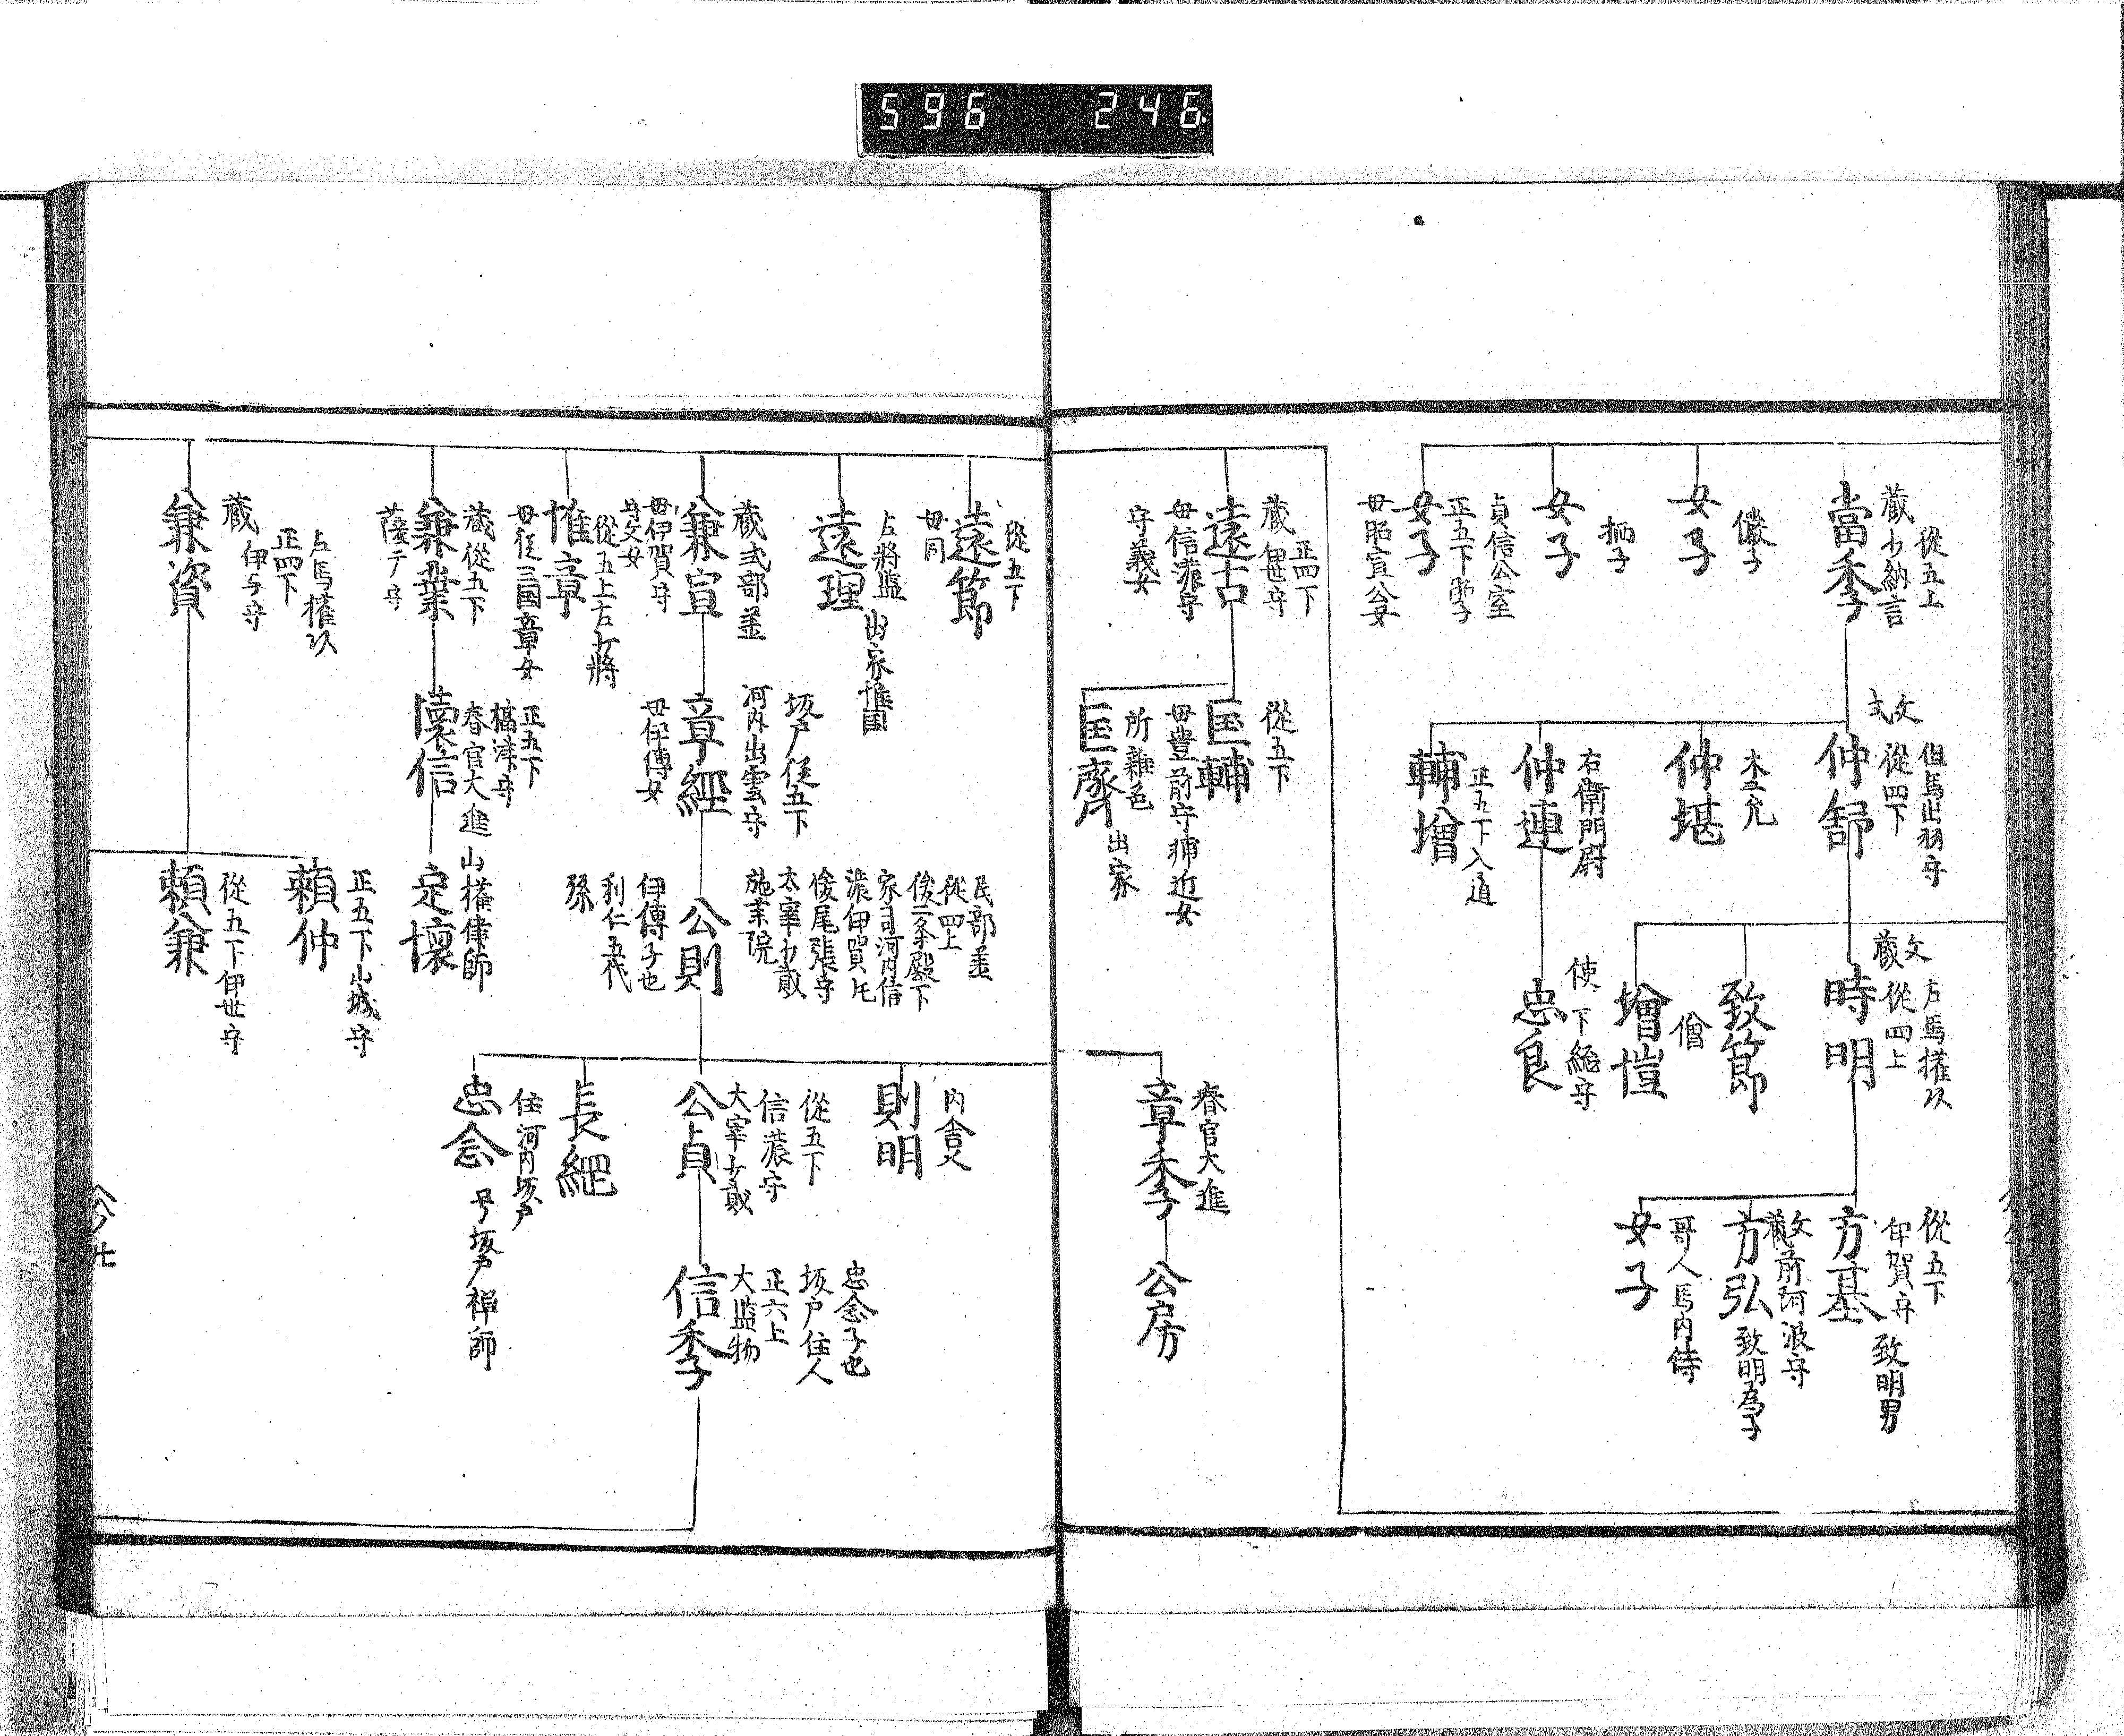 596 246
從五上
蔵少納言
當季
儼子
女子
栖子
女子
貞信公室
正五下
女子
母昭宣公女
但馬出羽守
文從四下
式
仲舒
木工允
仲堪
右衛門尉
仲連
正五下入道
輔增
左馬權頭
文從四上
蔵
時明
致節
僧
增愷
使下総守
忠良
從五下
伊賀守
方基
致明男
文前阿波守
蔵
方弘
致明為子
哥人馬内侍
女子
正四下
蔵伊世守
遠古
母信濃守
守義女
從五下
匡輔
母豊前守輔近女
所雜色
匡齊
出家
春宮大進
章季
公房
從五下
遠節
母同
左將監
遠理
出家
蔵式部丞
兼宣
母伊賀守
守文女
從五上右少將
惟章
母從三国章女
蔵從五下
兼業
左馬權頭
正四下
蔵伊与守
兼資
坂戸從五下
河内出雲守
章經
母伊傳女
正五下
攝津守
春宮大進
懷信
民部丞
從四上
後二条殿下
家司河内信
濃伊賀
後尾張守
太宰少貳
施薬院
公則
伊傳子也
利仁五代
孫
山權律師
定懷
正五下山城守
頼仲
從五下伊世守
頼兼
内舍人
則明
從五下
信濃守
大宰少貳
公貞
長經
住河内坂戸
忠念
号坂戸禅師
忠念子也
坂戸住人
正六上
大監物
信季